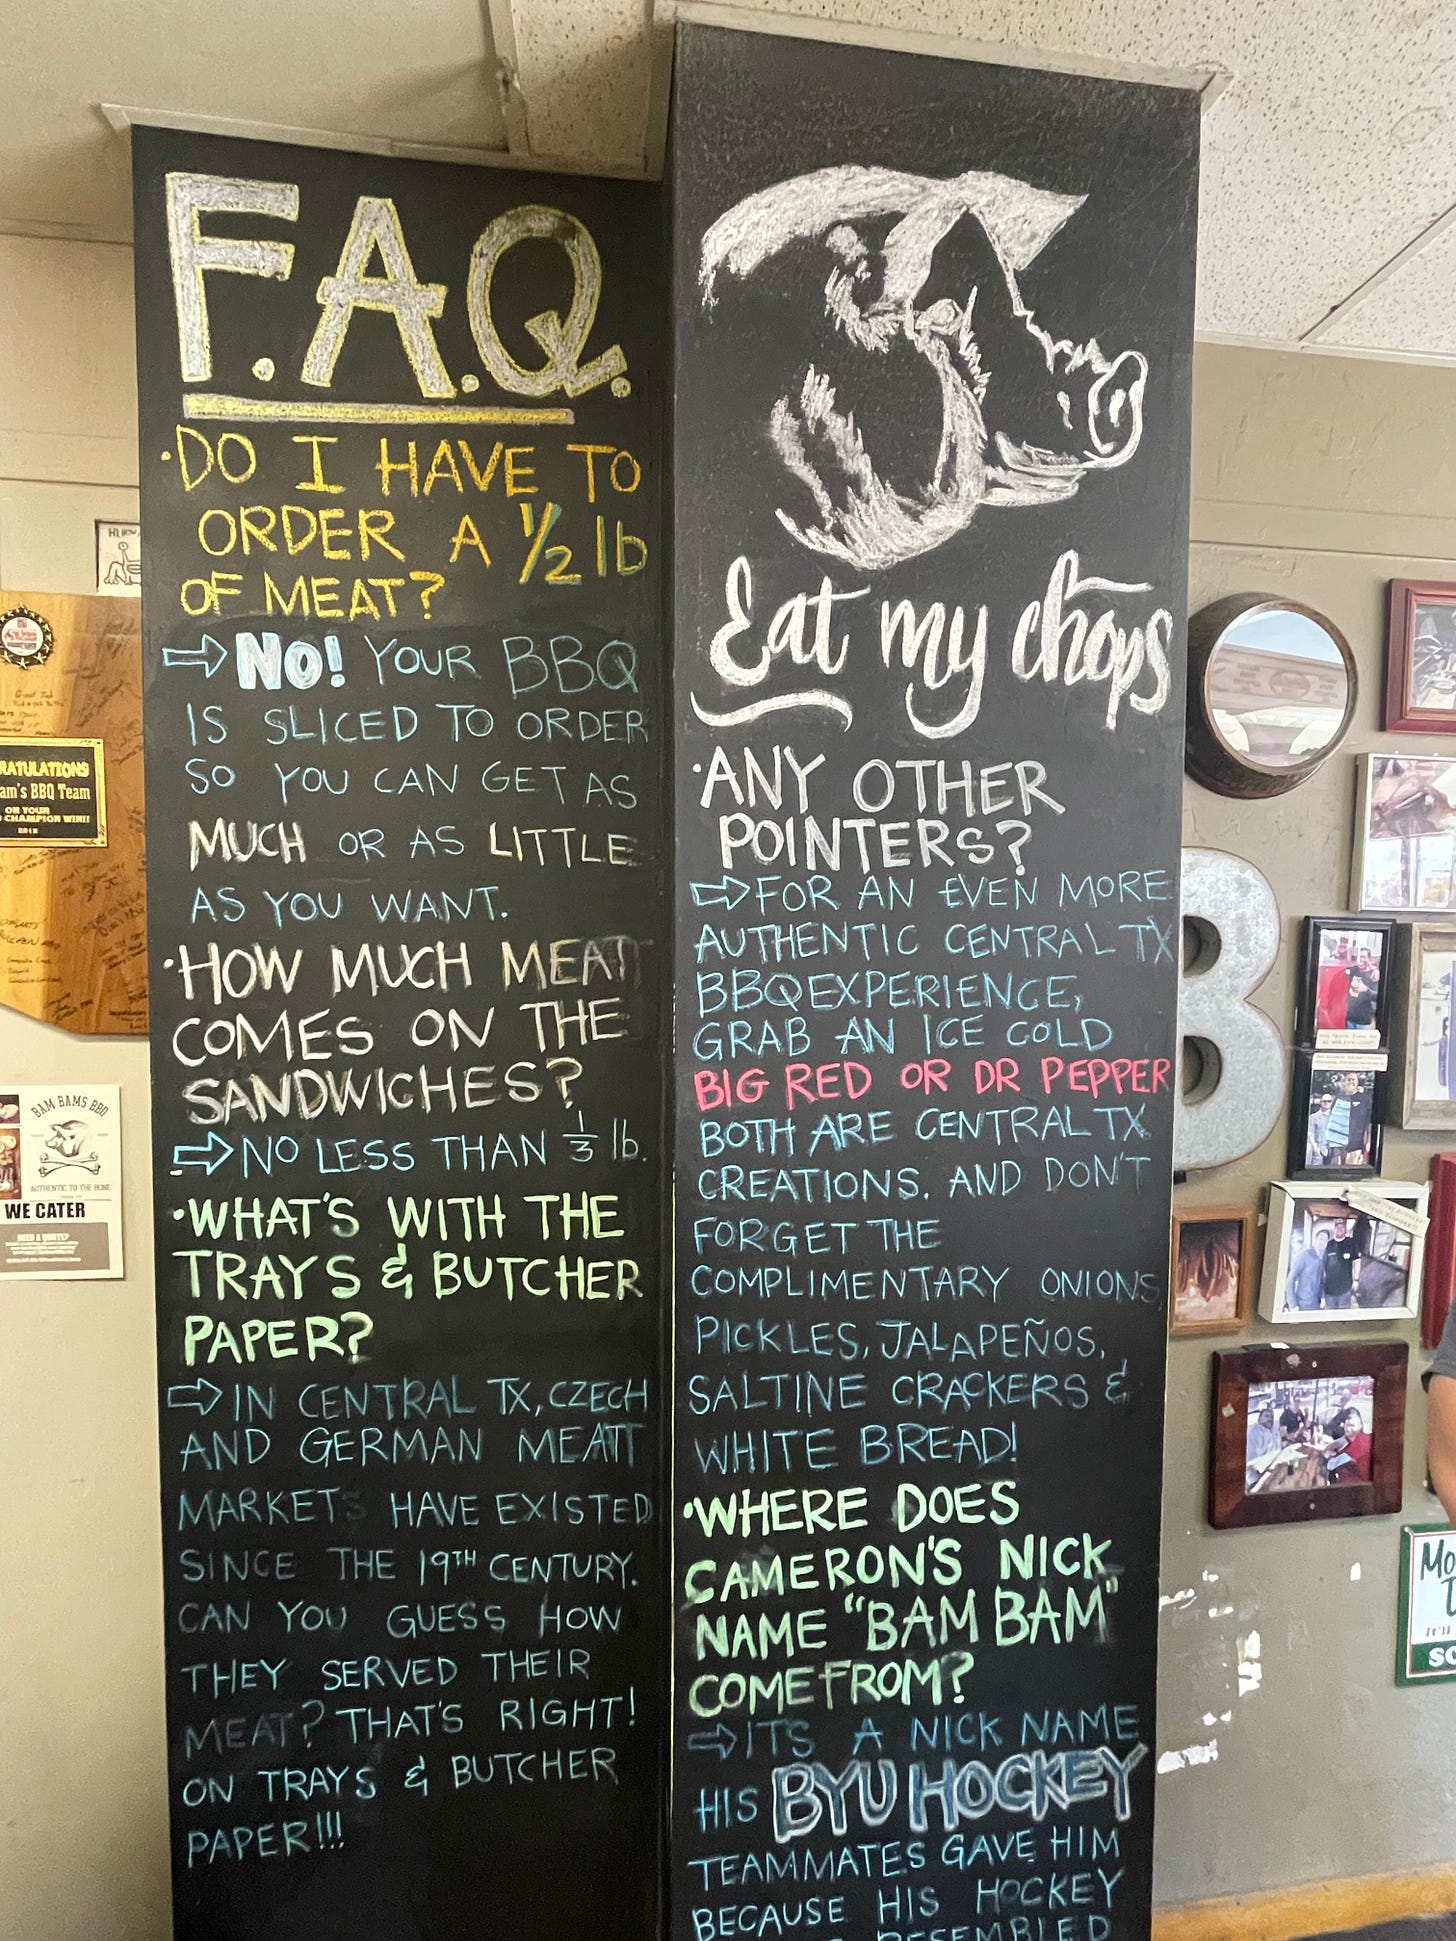 F.A.Q.
·DO I HAVE TO
ORDER A 1/2 lb
OF MEAT?
⇨NO! YOUR BBQ
IS SLICED TO ORDER
SO YOU CAN GET AS
MUCH OR AS LITTLE
AS YOU WANT.
·HOW MUCH MEAT
COMES ON THE
SANDWICHES?
⇨NO LESS THAN 1/3 lb.
·WHAT'S WITH THE
TRAYS & BUTCHER
PAPER?
⇨IN CENTRAL TX, CZECH
AND GERMAN MEATT
MARKETS HAVE EXISTED
SINCE THE 19TH CENTURY.
CAN YOU GUESS HOW
THEY SERVED THEIR
MEAT? THAT'S RIGHT!
ON TRAYS & BUTCHER
PAPER!!!
Eat my chops
·ANY OTHER
POINTERS?
⇨FOR AN EVEN MORE
AUTHENTIC CENTRAL TX
BBQ EXPERIENCE,
GRAB AN ICE COLD
BIG RED OR DR PEPPER
BOTH ARE CENTRAL TX
CREATIONS. AND DON'T
FORGET THE
COMPLIMENTARY ONIONS,
PICKLES, JALAPEÑOS,
SALTINE CRACKERS &
WHITE BREAD!
·WHERE DOES
CAMERON'S NICK
NAME "BAM BAM"
COME FROM?
⇨ITS A NICK NAME
HIS BYU HOCKEY
TEAMMATES GAVE HIM
BECAUSE HIS HOCKEY
RESEMBLED
RATULATIONS
am's BBQ Team
ON YOUR
CHAMPION WIN!!
2012
BAM BAMS BBQ
AUTHENTIC TO THE BONE
WE CATER
NEED A QUOTE?
B